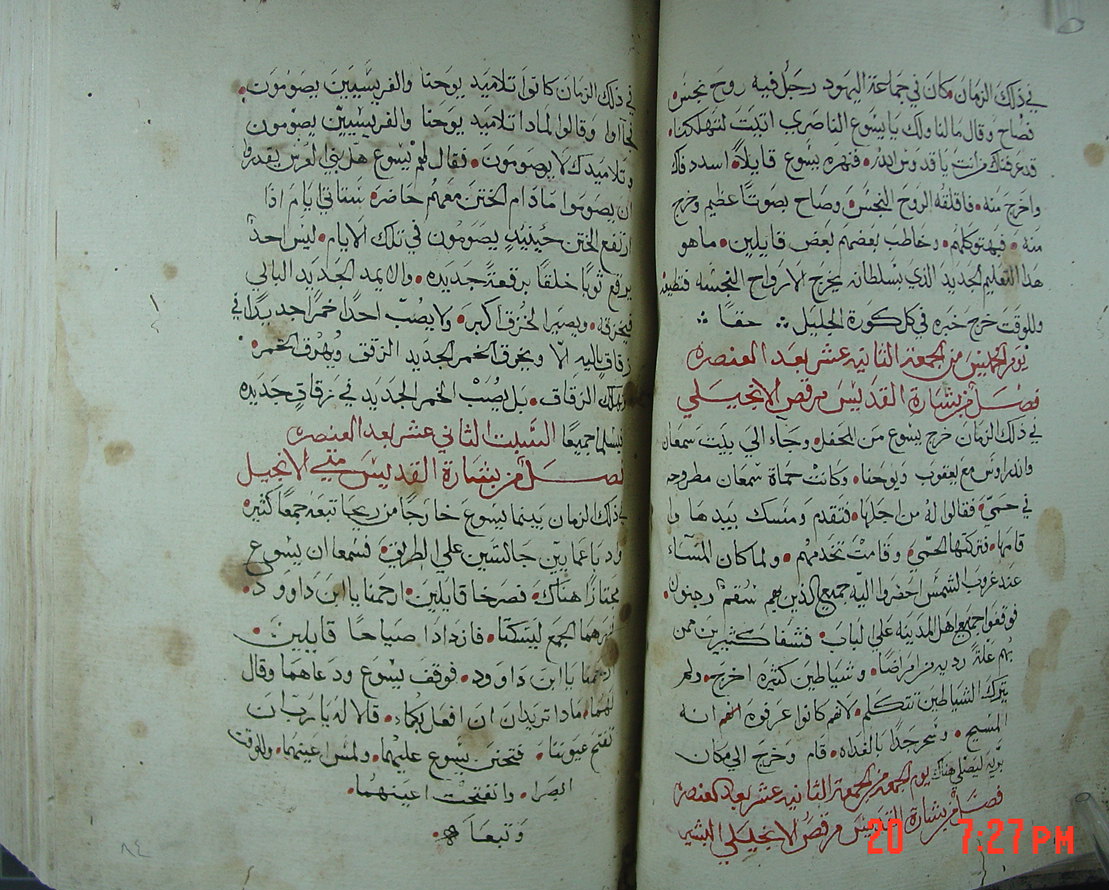 في ذلك الزمان كان في جماعة اليهود رجل فيه روح نجس
فصاح وقال مالنا ولك يا يسوع الناصري اتيت لتهلكنا
قد عرفتك من انت يا قدوس الله فنهره يسوع قايلاً اسدد فاك
واخرج منه فاقلقه الروح النجس وصاح بصوتًا عظيم وخرج
منه فبهتو كلهم وخاطب بعضهم بعض قايلين ما هو
هذا التعليم الجديد الذي بسلطانه يخرج الارواح النجسه فتطيعه
وللوقت خرج خبره في كل كورة الجليل حقا
يوم الخميس من الجمعة الثانيه عشر بعد العنصره
فصل من بشارة القديس مرقص الانجيلي
في ذلك الزمان خرج يسوع من المحفل وجاء الي بيت سمعان
واندراوس مع يعقوب ويوحنا وكانت حماة سمعان مطروحه
في حمي فقالوا له من اجلها فتقدم ومسك بيدها وا
قامها فتركتها الحمي وقامت تخدمهم ولما كان المساء
عند غروب الشمس احضروا اليه جميع الذين بهم سقم وجنون
فوقفوا جميع اهل المدينه علي الباب فشفا كثيرين ممن
بهم علة رديه من امراضا وشياطين كثيره اخرج ولم
يترك الشياطين تتكلم لانهم كانوا عرفوه انه
المسيح وسحر جدا بالغداه قام وخرج الي مكان
بريه ليصلي هناك يوم الجمعه من الجمعة الثانيه عشر بعد العنصره
فصل من بشارة القديس مرقص الانجيلي البشير
في ذلك الزمان كانوا تلاميد يوحنا والفريسيين يصومون
فجاوا وقالوا لمادا تلاميد يوحنا والفريسيين يصومون
وتلاميدك لا يصومون فقال لهم يسوع هل بني العرس يقدروا
ان يصوموا مادام الختن معهم حاضره ستاتي ايام اذا
ارتفع الختن حينيد يصومون في تلك الايام ليس احد
يرقع ثوبا خلقا برقعة جديده والا يمد الجديد البالي
فيخرقه ويصير الخرق اكبر ولا يصب احدا خمرا جديدا في
زقاق باليه الا ويخرق الخمر الجديد الزقق ويهرق الخمر
وتهلك الزقاق بل يصب الخمر الجديد في زقاق جديده
يسلما جميعا السبت الثاني عشر بعد العنصره
فصل من بشارة القديس متي الانجيل
في ذلك الزمان بينما يسوع خارجا من ريحا تبعه جمعا كثيره
ود باعمايين جالسين علي الطريق فسمعا ان يسوع
مجتازا هناك فصرخا قايلين ارحمنا يا ابن داوود
فنهرهما الجمع ليسكتا فازدادا صياحا قايلين
ارحمنا يا ابن داوود فوقف يسوع ودعاهما وقال
لهما مادا تريدان ان افعل بكما قالا له يا رب ان
تفتح عيوننا فتحنن يسوع عليهما ولمس اعينهما وللوقت
ابصرا وانفتحت اعينهما
وتبعاه
٨٤
20 7:27 PM